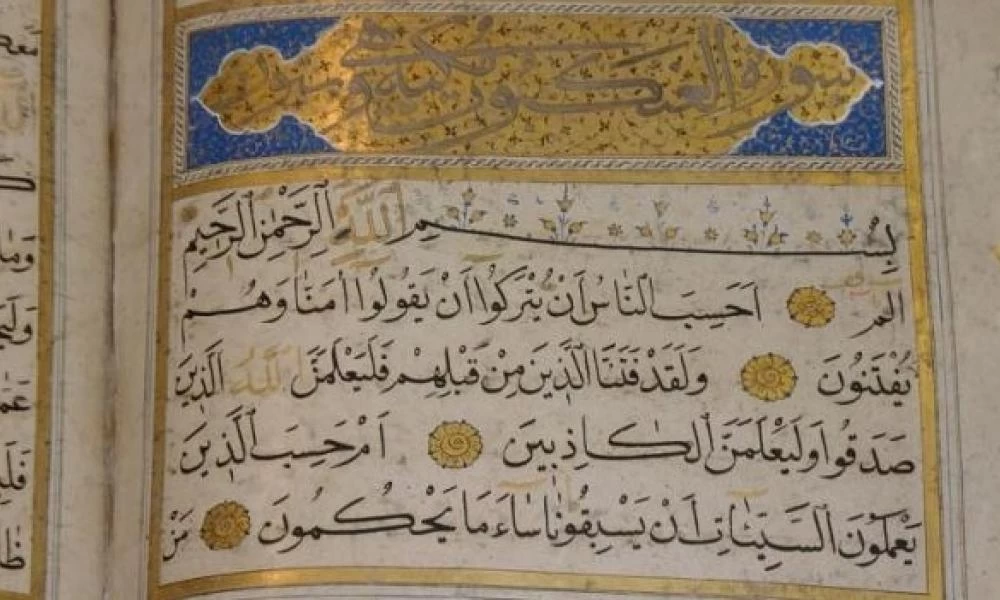 سورة العنكبوت مكية وهي
بسم الله الرحمن الرحيم
الم اَحَسِبَ النَّاسُ اَنْ يُتْرَكُوٓا اَنْ يَقُولُوٓا اٰمَنَّا وَهُمْ
يُفْتَنُونَ وَلَقَدْ فَتَنَّا الَّذِينَ مِنْ قَبْلِهِمْ فَلَيَعْلَمَنَّ اللّٰهُ الَّذِينَ
صَدَقُوا وَلَيَعْلَمَنَّ الْكَاذِبِينَ اَمْ حَسِبَ الَّذِينَ
يَعْمَلُونَ السَّيِّـَٔاتِ اَنْ يَسْبِقُونَا سَٓاءَ مَا يَحْكُمُونَ مَنْ